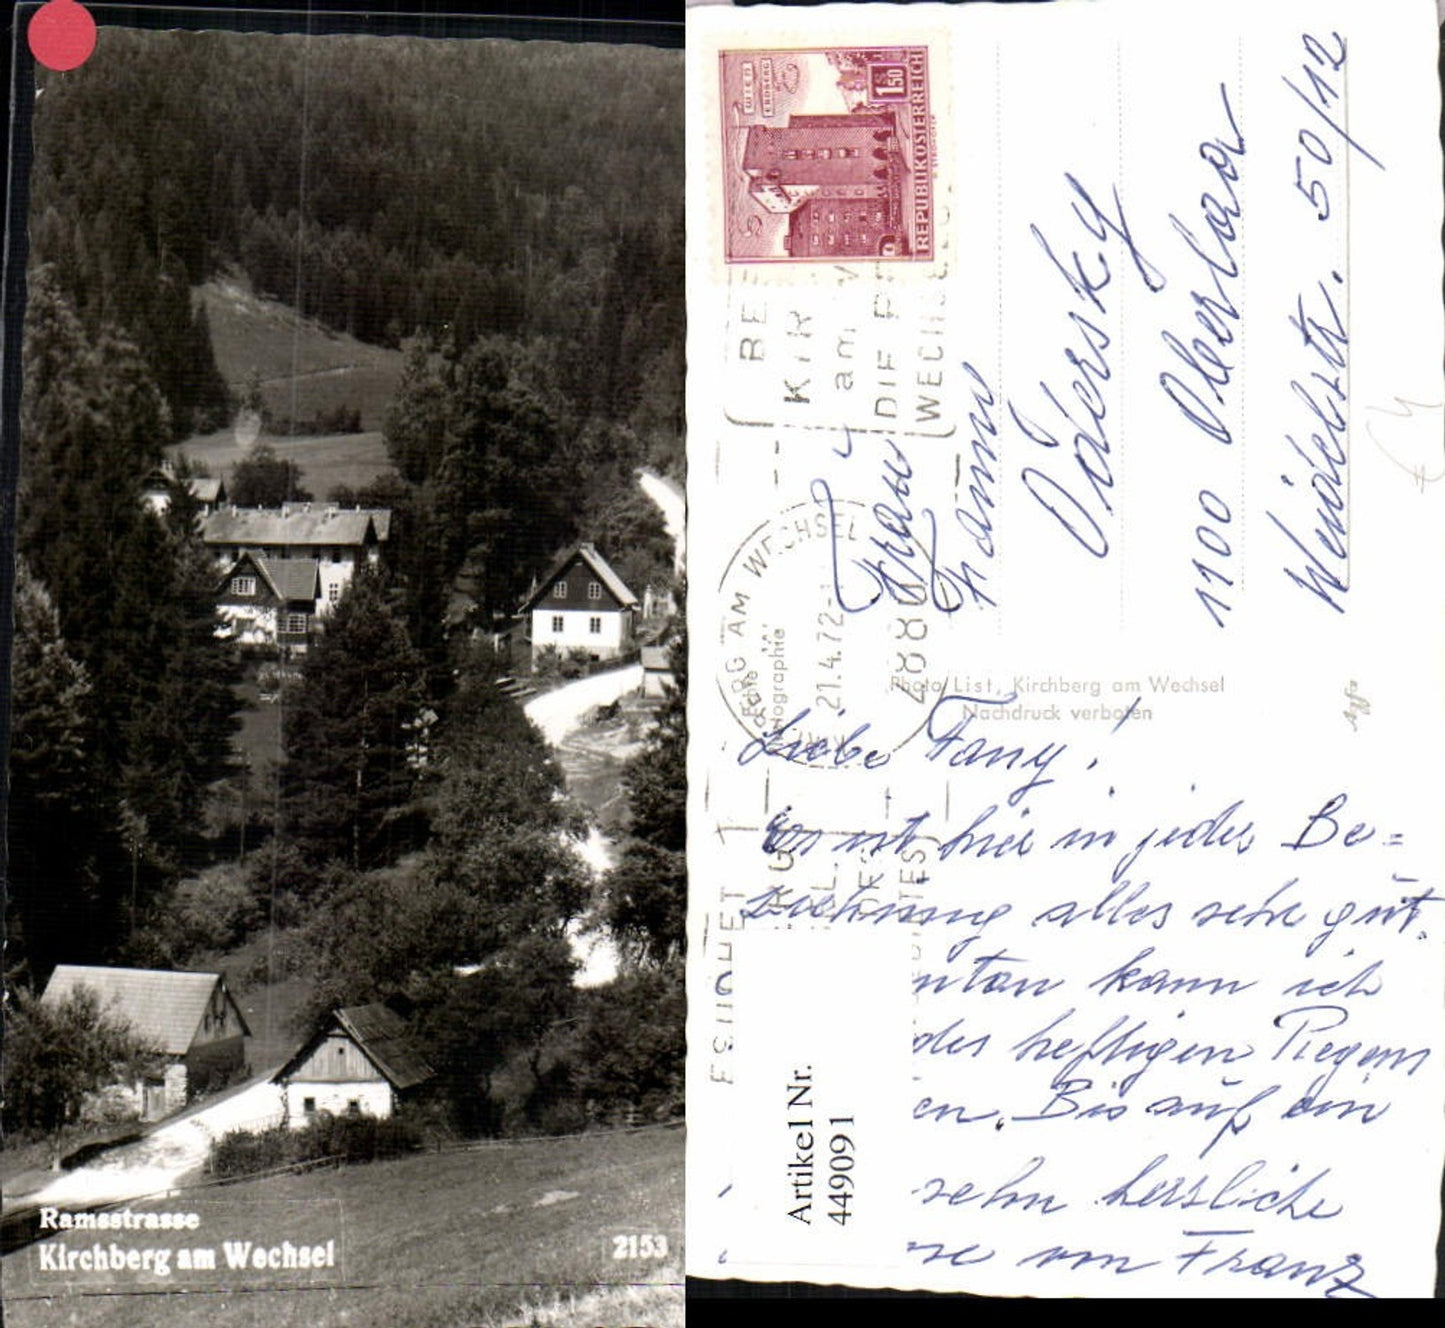 Ramsstrasse
Kirchberg am Wechsel
2153
WIEN
ERDBERG
1.50
REPUBLIK ÖSTERREICH
KIR
am
DIE
WECHSEL
21.4.72
2880
Frau
Fanni
Odersky
1100 Oberlaa
Weidelstr. 50/12
Echte
Photographie
Photo List, Kirchberg am Wechsel
Nachdruck verboten
Liebe Fany!
Es ist hier in jeder Be=
ziehung alles sehr gut.
kann ich
des heftigen Regens
en. Bis auf ein
sehn herzliche
se von Franz
Artikel Nr.
449091